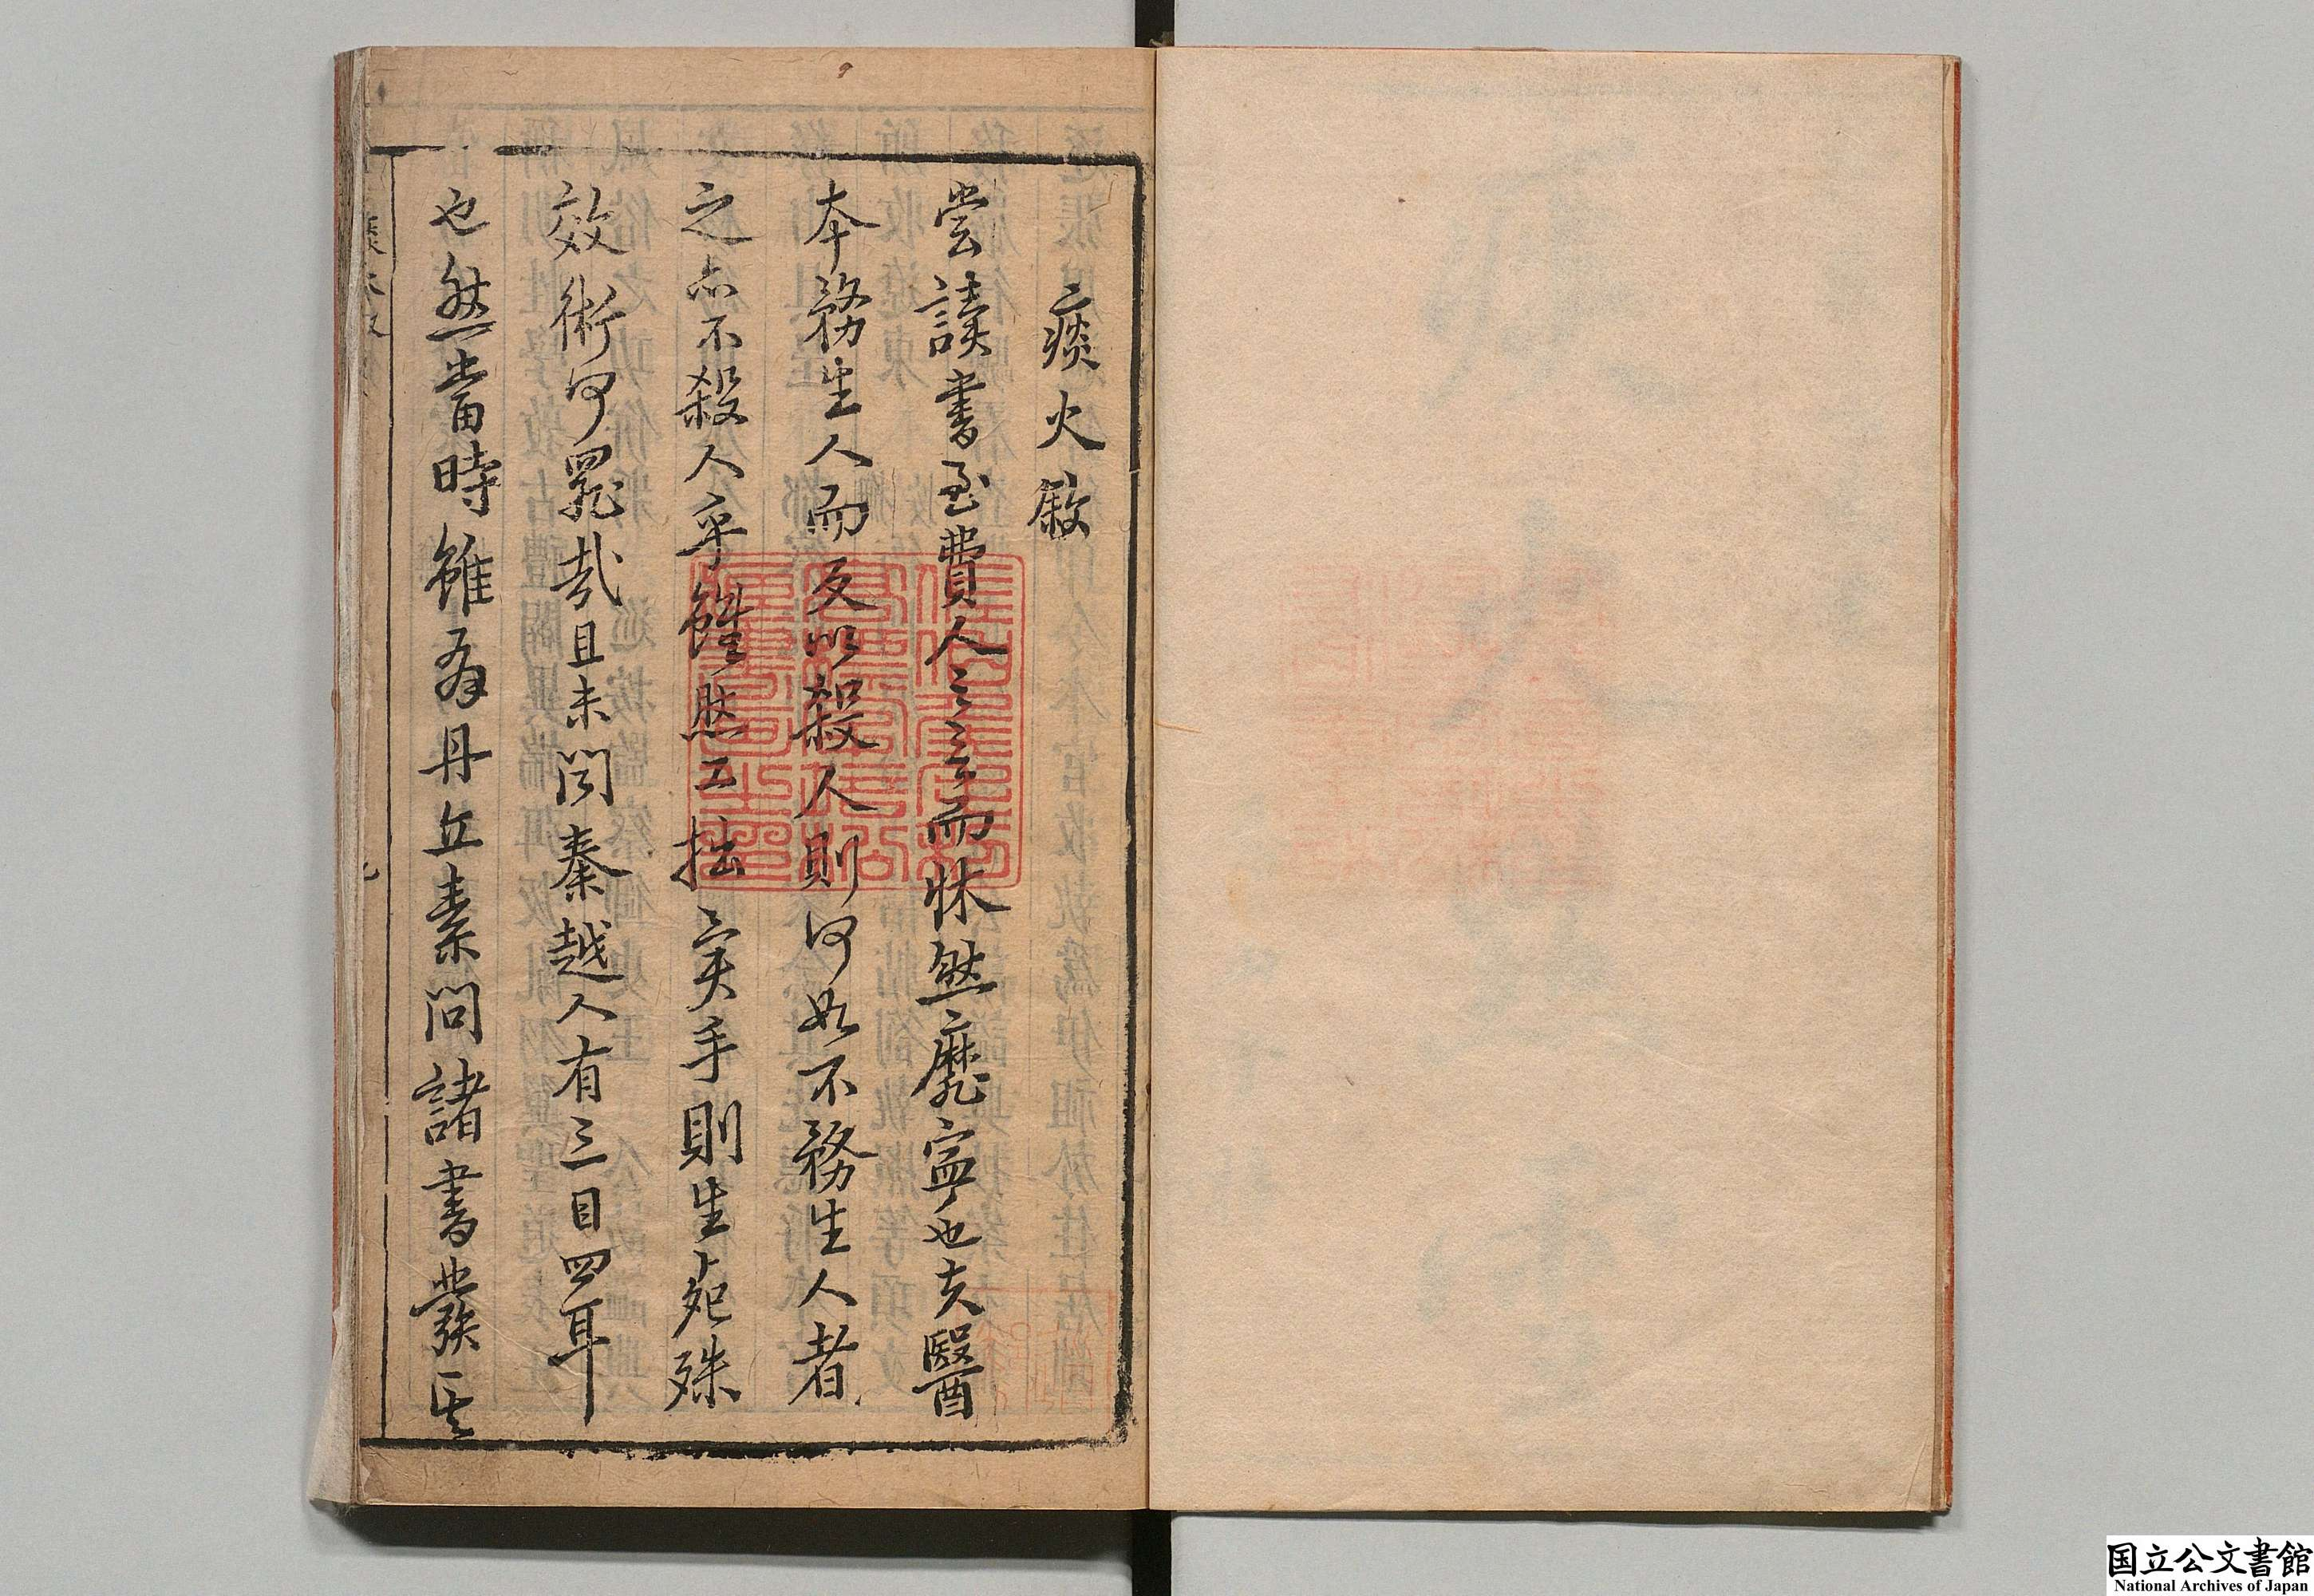 痰火敘
嘗讀書至費人之言而怵然靡寧也夫醫
本務生人而反以殺人則何如不務生人者
之亦不殺人乎雖然工拙寔手則生死殊
效術何罪哉且未聞秦越人有三目四耳
也然當時雖有丹丘素問諸書發其
国立公文書館
National Archives of Japan